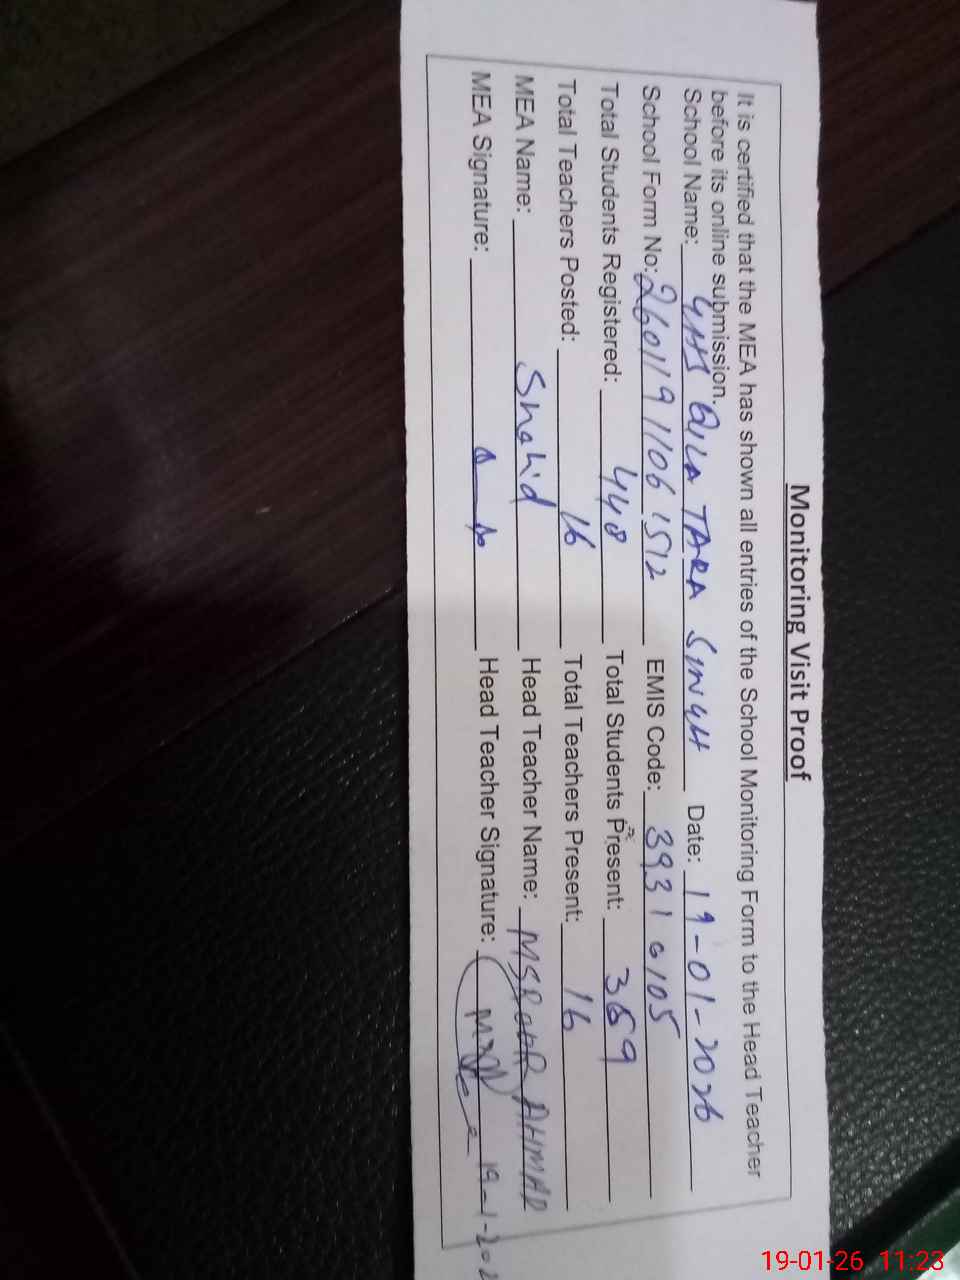 Monitoring Visit Proof
It is certified that the MEA has shown all entries of the School Monitoring Form to the Head Teacher
before its online submission.
School Name: GHS QILA TARA SINGH Date: 19-01-2026
School Form No: 2601191106 1512 EMIS Code: 39310105
Total Students Registered: 448 Total Students Present: 369
Total Teachers Posted: 16 Total Teachers Present: 16
MEA Name: Shahid Head Teacher Name: AHMAD
MEA Signature: Head Teacher Signature: 19-1-202
19-01-26 11:23